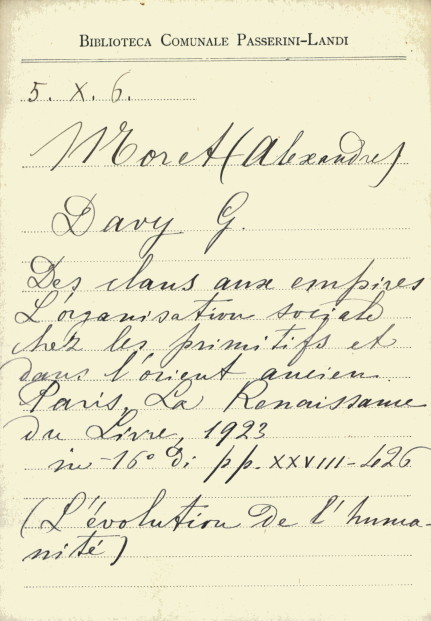 BIBLIOTECA COMUNALE PASSERINI-LANDI
5. X. 6.
Moret (Alexandre)
Davy G.
Des clans aux empires
L'organisation sociale
chez les primitifs et
dans l'orient ancien.
Paris, La Renaissance
du Livre, 1923
in-16° di pp. XXVIII-426
(L'évolution de l'huma-
nité)